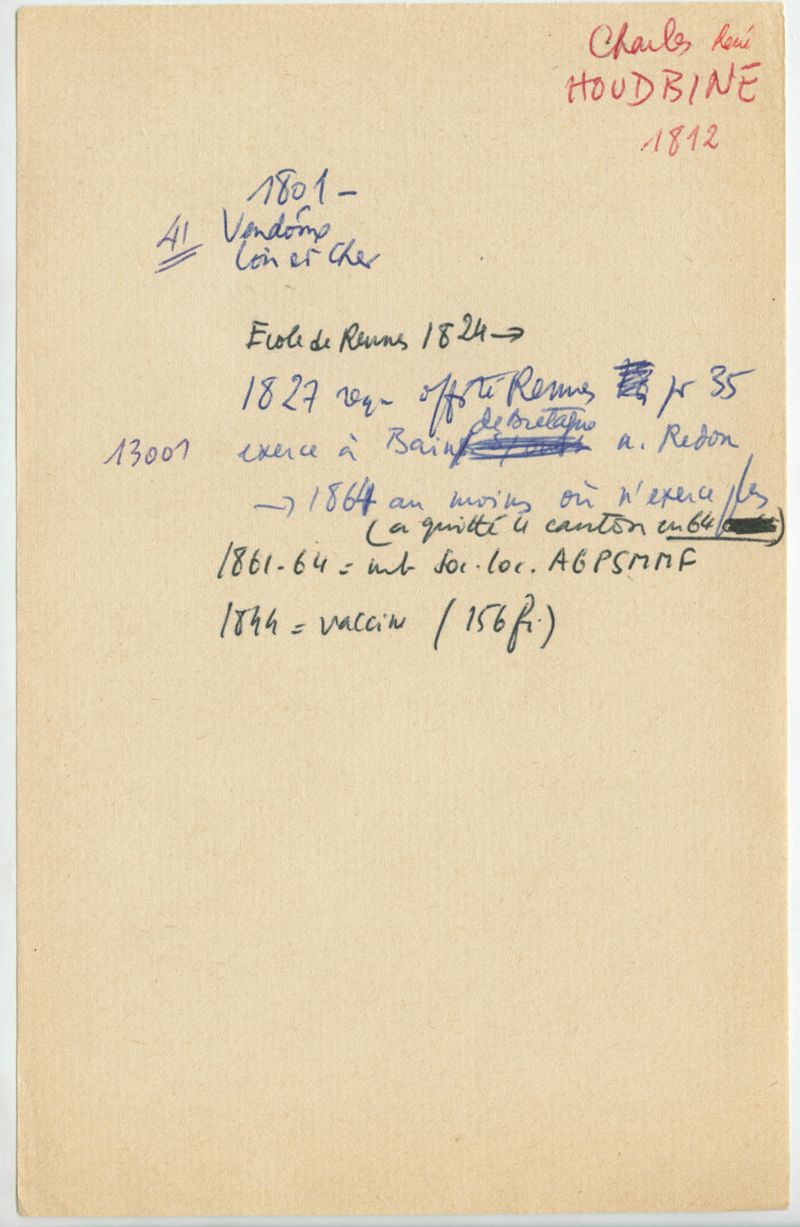 Charles René
HOUDBINE
1812
1801 -
41 Vendôme
Loir et Cher
Ecole de Rennes 1824 →
1827 reçu off. sté Rennes pr 35
de Bretagne
13001 exerce à Bain a. Redon
→ 1864 au moins où n'exerce plus
(a quitté le canton en 64)
1861-64 = mb Soc. loc. AGPSMMF
1844 = vaccine (156 fr.)